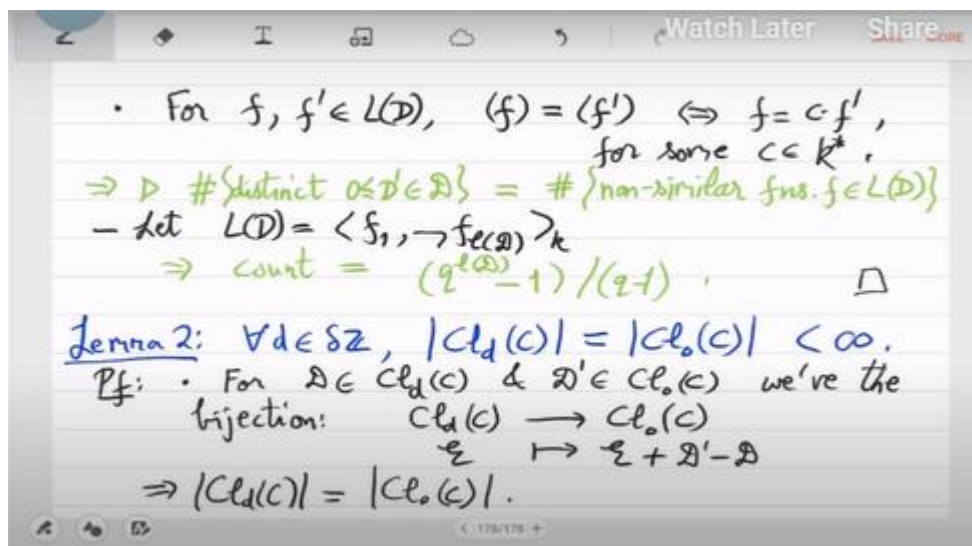 Watch Later Share
MORE
· For f, f' ∈ L(D), (f) = (f') ⇔ f = c·f',
for some c ∈ k*.
⇒ D #{distinct 0≤D'∈𝒟} = #{non-similar fns. f∈L(D)}
- Let L(D) = <f₁, ⇁ f_{ℓ(𝒟)}>_k
⇒ count = (q^{ℓ(𝒟)} - 1)/(q-1).
Lemma 2: ∀d∈δℤ, |Cl_d(C)| = |Cl₀(C)| < ∞.
Pf: · For 𝒟 ∈ Cl_d(C) & 𝒟' ∈ Cl₀(C) we've the
bijection: Cl_d(C) → Cl₀(C)
ξ ↦ ξ + 𝒟' - 𝒟
⇒ |Cl_d(C)| = |Cl₀(C)|.
< 178/178 +